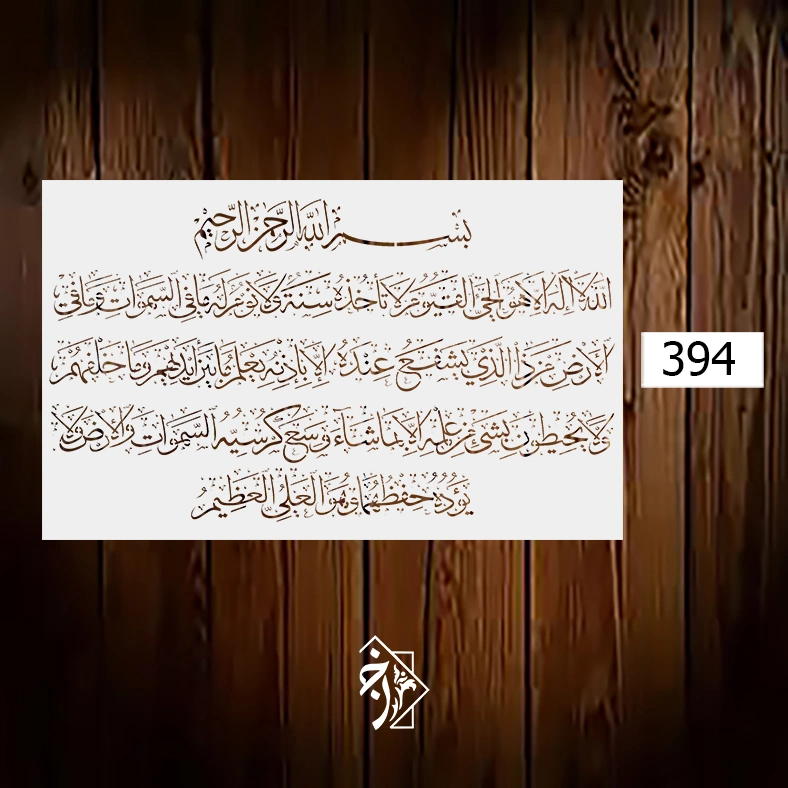 بسم الله الرحمن الرحيم
الله لا اله الا هو الحي القيوم لا تأخذه سنة ولا نوم له ما في السموات وما في
الارض من ذا الذي يشفع عنده الا باذنه يعلم ما بين ايديهم وما خلفهم
ولا يحيطون بشيء من علمه الا بما شاء وسع كرسيه السموات والارض ولا
يؤده حفظهما وهو العلي العظيم
394